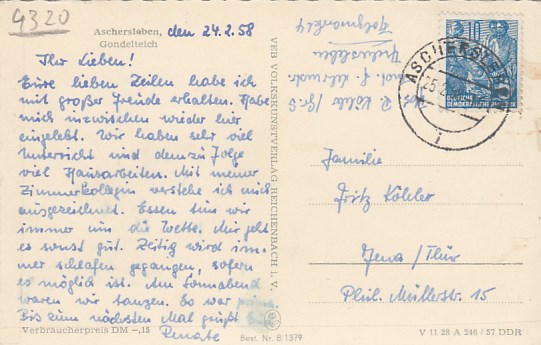 4320
Aschersleben, den 24.2.58
Gondelteich
Ihr Lieben!
Eure lieben Zeilen habe ich
mit großer Freude erhalten. Habe
mich inzwischen wieder hier
eingelebt. Wir haben sehr viel
Unterricht und demzufolge
viel Hausarbeiten. Mit meiner
Zimmerkollegin verstehe ich mich
ausgezeichnet. Essen tun wir
immer um die Wette. Mir geht
es sonst gut. Zeitig wird im-
mer schlafen gegangen, sofern
es möglich ist. Am Sonnabend
waren wir tanzen. Es war prima.
Bis zum nächsten Mal grüßt
Renate
Verbraucherpreis DM –,15
Best. Nr. 8/1379
VEB VOLKSKUNSTVERLAG REICHENBACH i. V.
R. Köhler
Aschersleben
ASCHERSLEBEN
DEUTSCHE
DEMOKRATISCHE
Familie
Fritz Köhler
Jena/Thür
Phil. Müllerstr. 15
V 11 28 A 246 / 57 DDR